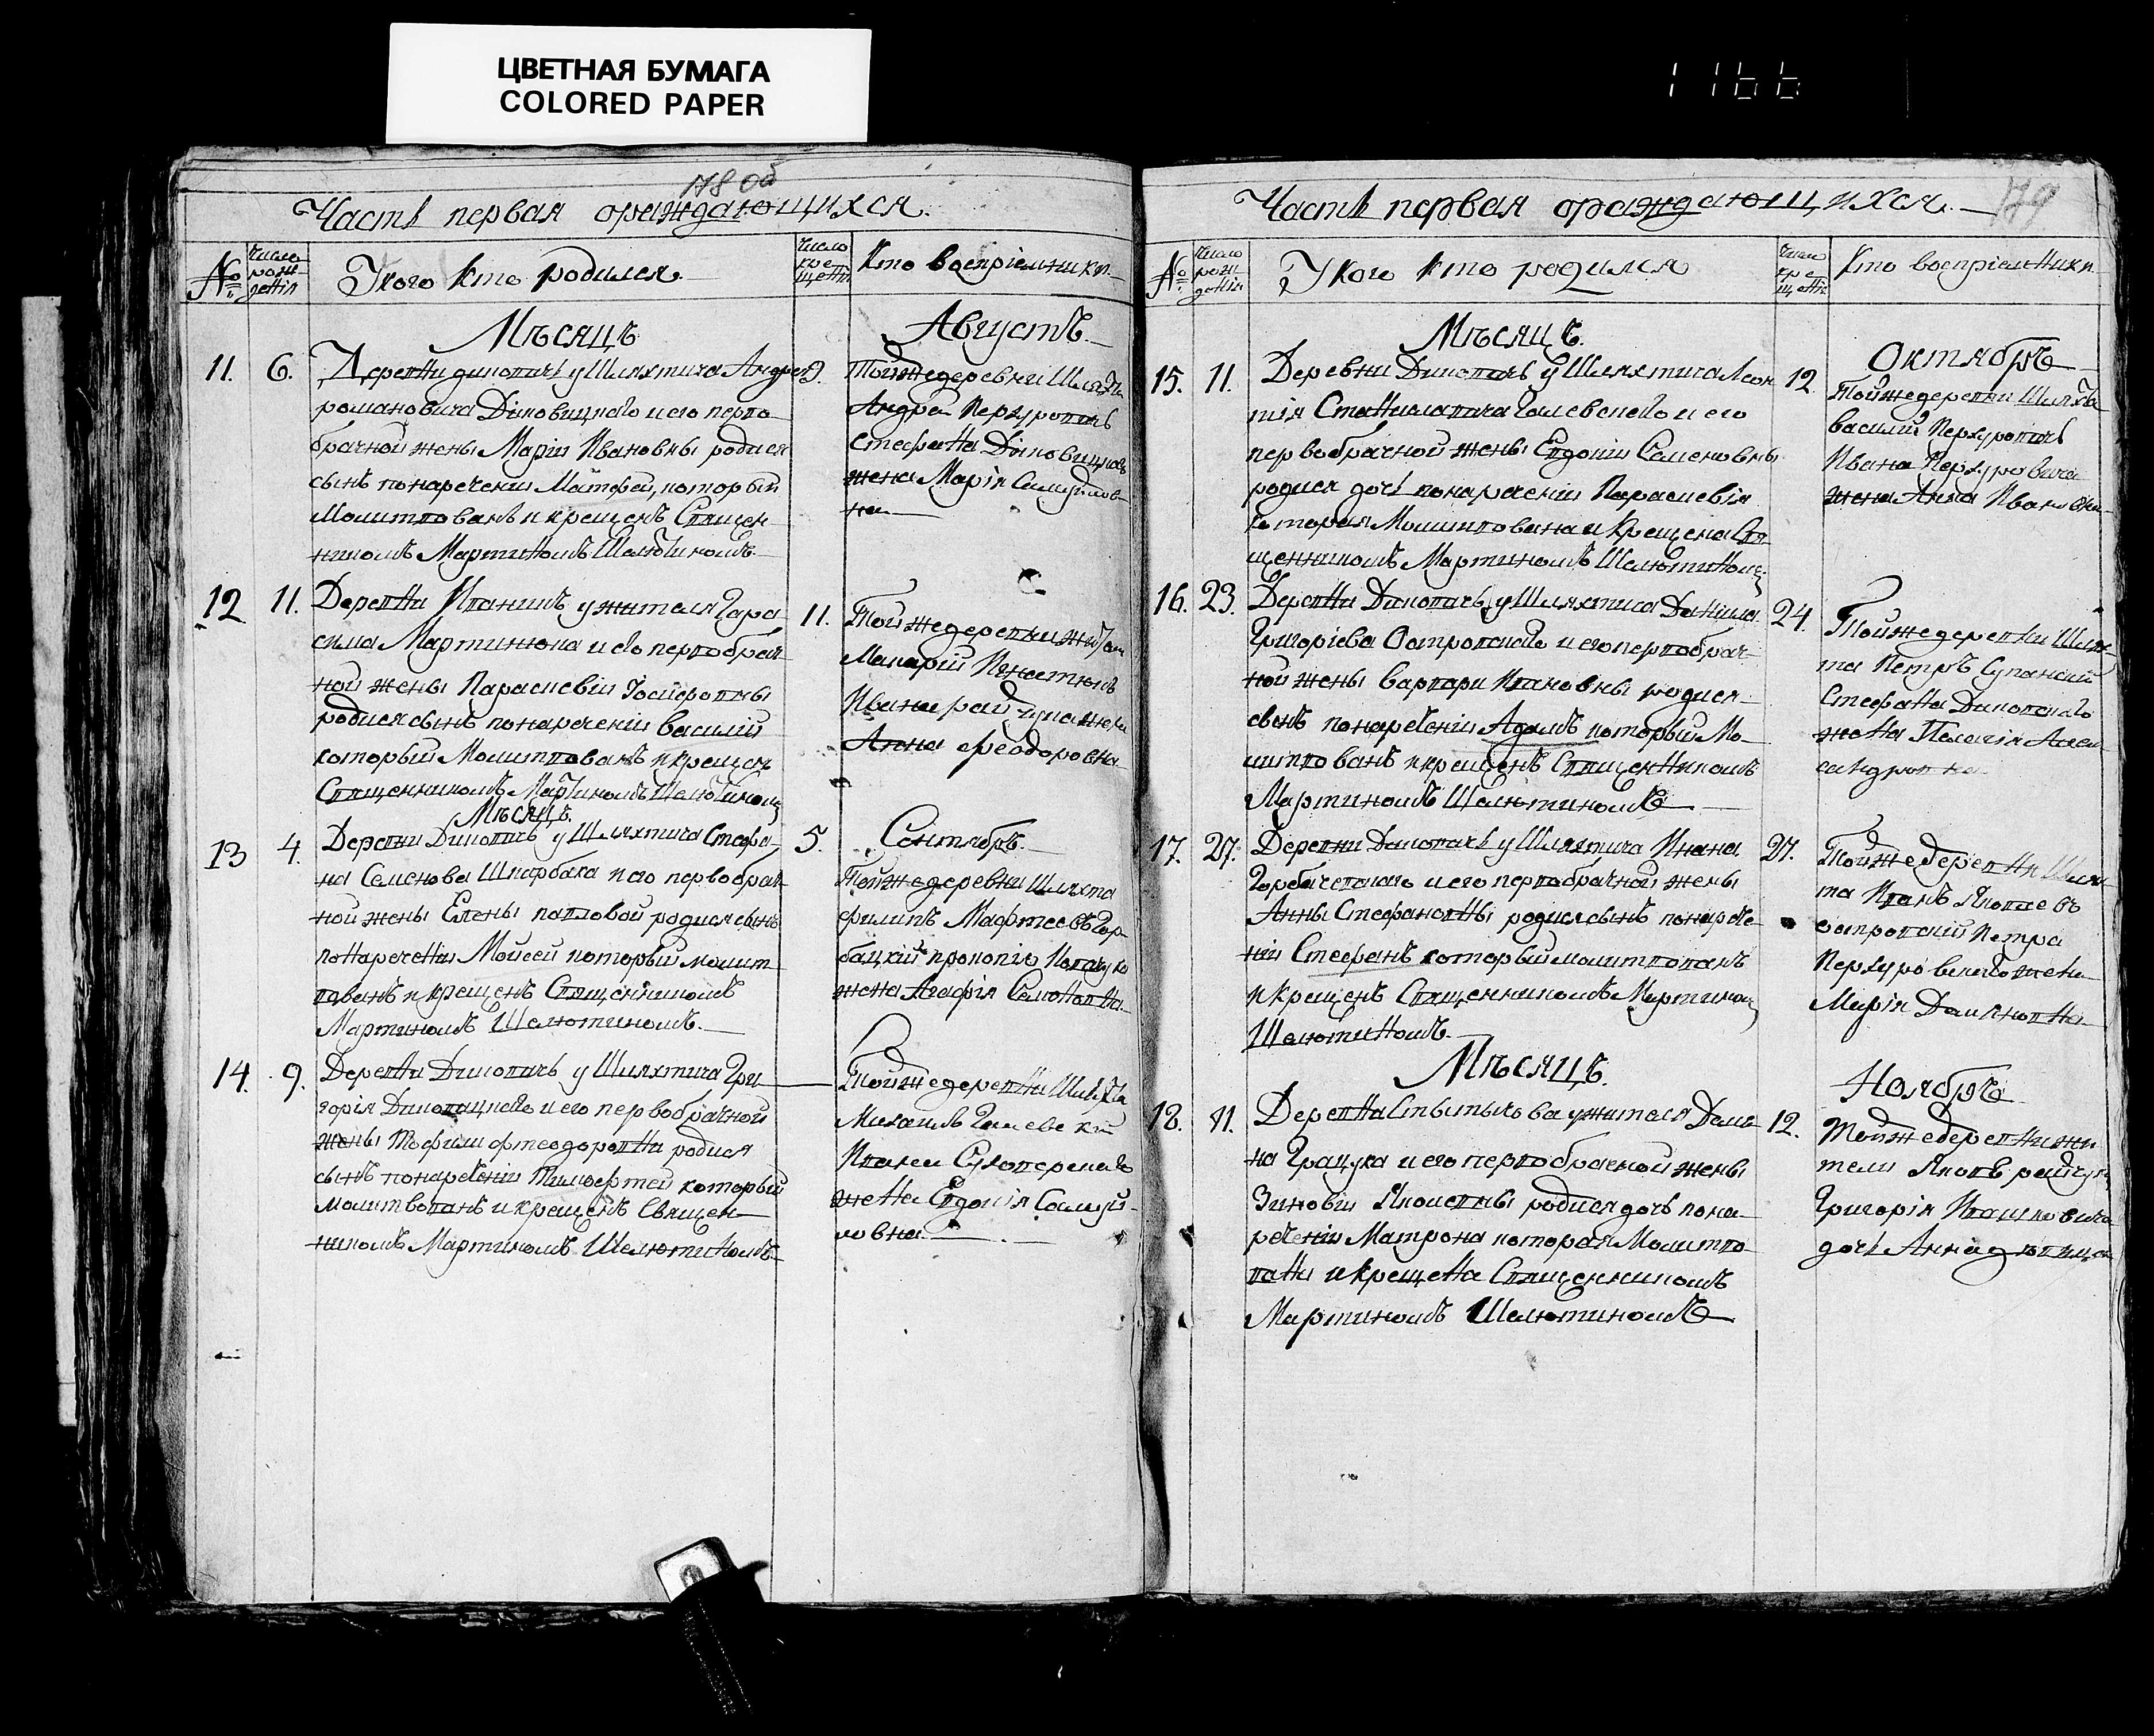 ЦВЕТНАЯ БУМАГА
COLORED PAPER
1166
178 об
Часть первая ораждающихся.
№
Число рож денія
У кого кто родился
Число кре щенія
Кто воспріемники
Мѣсяцъ
Августъ
11. 6. Деревни диповичь у Шляхтича Андрея
романовича Диковицкого и его перво
брачной жены Маріи Ивановны родися
сынъ понаречении Матфей, который
Молитвованъ и крещенъ Священ
никомъ Мартиномъ Шелютиномъ
Тойже деревни Шляхта
Андрей Перхуровичь
Стефана Диковицкаго
жена Марія Самуилов
на
12 11. Деревни Иваничь у жителя Гара
сима Мартинюка и его первобрач
ной жены Параскевіи
родися сынъ понаречении василий
который Молитвованъ и крещенъ
Священникомъ Мартиномъ Шелютиномъ
11. Тойже деревни
Макарій
Ивана райчука жена
Анна феодоровна
Мѣсяцъ
Сентябрь
13 4. Деревни Диковичь у Шляхтича Стефа
на Семенова Шкарбака и его первобрач
ной жены Елены павловой родися сынъ
понаречении Мойсей который молит
вованъ и крещенъ Священникомъ
Мартиномъ Шелютиномъ.
5. Тойже деревни Шляхта
филипъ Мафтеевъ Гор
бацкій прокопія
жена Агафія Семеновна
14. 9. Деревни Диковичь у Шляхтича Гри
горія Диковицкого и его первобрачной
жены феодоровны родися
сынъ понаречении Тимофтей который
молитвованъ и крещенъ Священ
никомъ Мартиномъ Шелютиномъ
Тойже деревни Шляхта
Михаилъ
Ивана
жена Евдокія Самуй
ловна
179
Часть первая ораждающихся.
№
Число рож денія
У кого кто родился
Число кре щенія
Кто воспріемники
Мѣсяцъ
Октябрь
15. 11. Деревни Диковичь у Шляхтича Леон
тія Станиславича Голевского и его
первобрачной жены Евдокіи Семеновны
родися дочь понаречении Параскевія
которая Молитвована и крещена Свя
щенникомъ Мартиномъ Шелютиномъ
12 Тойже деревни Шляхта
василий Перхуровичь
Ивана Перхуровича
жена Анна Ивановна
16. 23. Деревни Диковичь у Шляхтича Данила
Григоріева Островского и его первобрач
ной жены варвари Ивановны родися
сынъ понаречении Адамъ который Мо
литвованъ и крещенъ Священникомъ
Мартиномъ Шелютиномъ
24. Тойже деревни Шлях
та Петръ
Стефана Диковского
жена Пелагія Алек
сандровна
17. 27. Деревни Диковичь у Шляхтича Ивана
Горбачевского и его первобрачной жены
Анны Стефановны родися сынъ понарече
ніи Стефанъ который молитвованъ
и крещенъ Священникомъ Мартиномъ
Шелютиномъ
27. Тойже деревни Шлях
та Иванъ Яковлевъ
островскій Петра
Перхуровского жена
Марія Демяновна
Мѣсяцъ
Ноябрь
18. 11. Деревни Стытычева у жителя Деми
на Грацука и его первобрачной жены
Зиновіи Якимовны родися дочь пона
речении Матрона которая Молитво
вана и крещена Священникомъ
Мартиномъ Шелютиномъ
12. Тойже деревни жи
тели Яковъ райчук
Григорія Ивашковича
дочь Анна девица